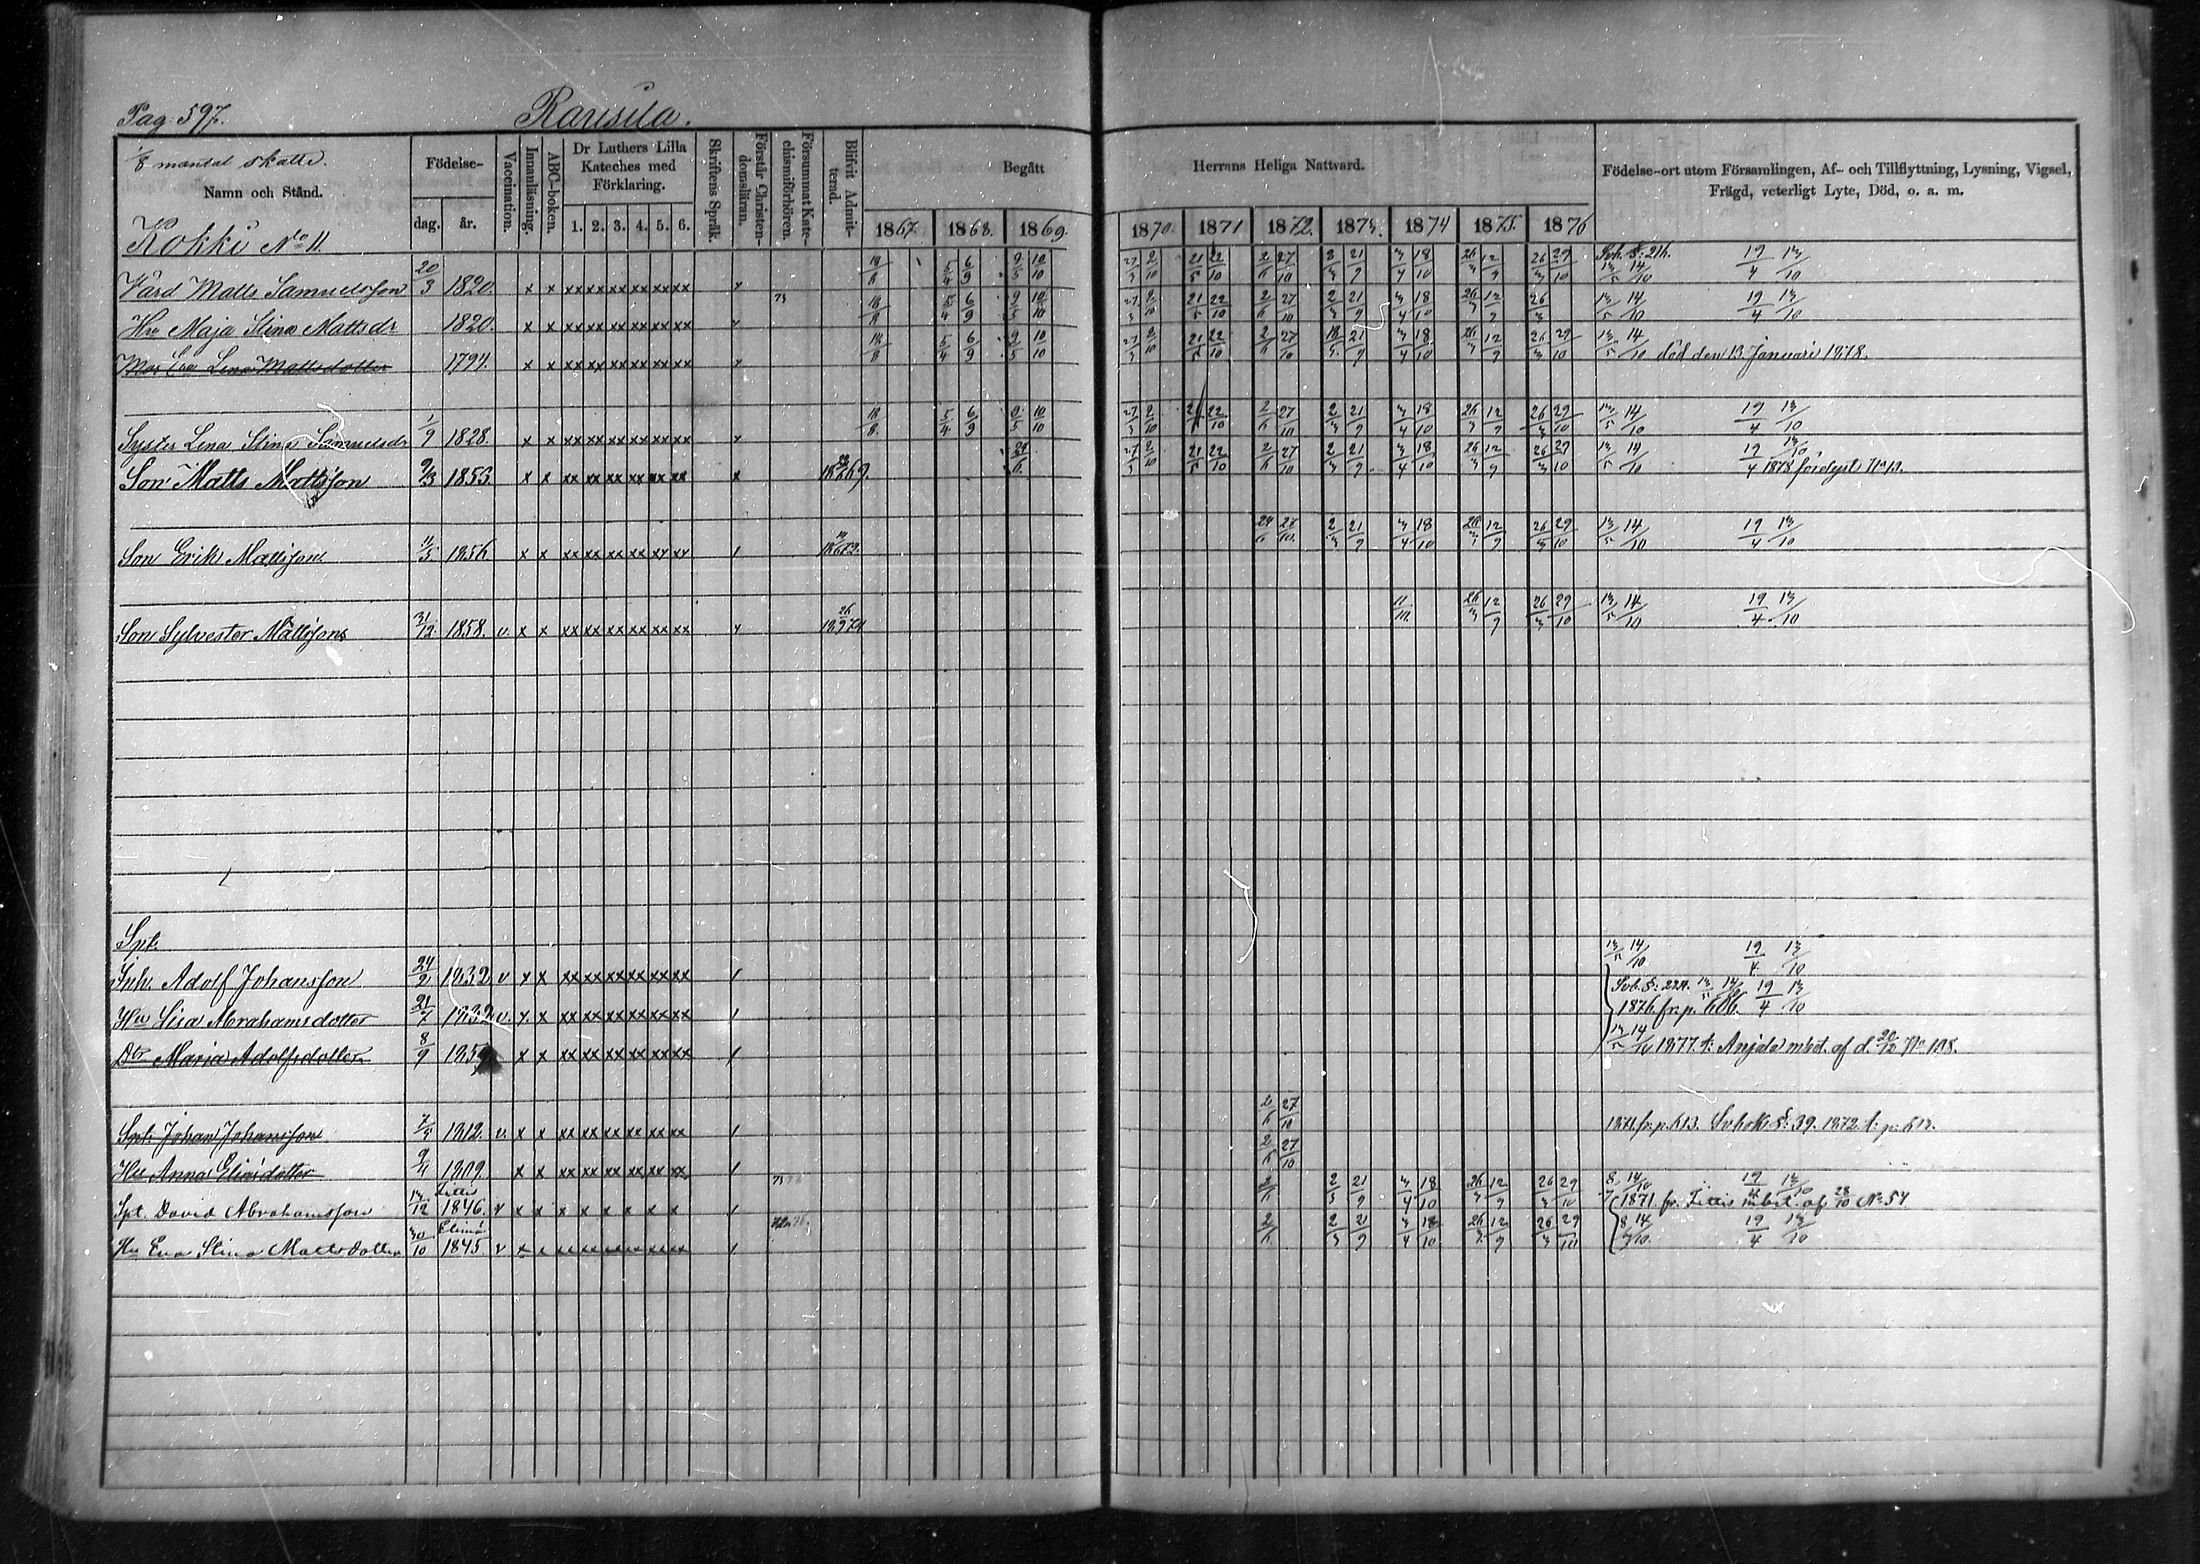 Pag. 597. Rausila.
1/8 mantal skatte.
Namn och Stånd. Födelse- dag. år. Vaccination. Innanläsning. ABC-boken. Dr Luthers Lilla Kateches med Förklaring. 1. 2. 3. 4. 5. 6. Skriftens Språk. Förstår Christendomsläran. Försummat Katechismiförhören. Blifvit Admitterad. Begått Herrans Heliga Nattvard. Födelse-ort utom Församlingen, Af- och Tillflyttning, Lysning, Vigsel, Frägd, veterligt Lyte, Död, o. a. m.
1867. 1868. 1869. 1870. 1871 1872. 1873. 1874 1875. 1876
Kokki No 11.
Värd Matts Samuelsson 20/3 1820. x x xx xx xx xx xx xx x 18/8 5/4 6/9 9/5 10/10 27/3 2/10 21/5 22/10 2/6 27/10 2/3 21/9 3/4 18/10 26/3 12/9 26/3 29/10 13/5 14/10 19/4 13/10
Hu Maja Stina Mattsdr 1820. x x xx xx xx xx xx xx 73 18/8 5/4 6/9 9/5 10/10 27/3 2/10 21/5 22/10 2/6 27/10 2/3 21/9 3/4 18/10 26/3 12/9 26/3 13/5 14/10 19/4 13/10
Mor Eva Lena Mattsdotter 1794. x x xx xx xx xx xx xx 18/8 5/4 6/9 9/5 10/10 27/3 2/10 21/5 22/10 2/6 27/10 21/9 3/4 18/10 26/3 12/9 26/3 29/10 13/5 14/10 död den 13 Januari 1878.
Syster Lena Stina Samuelsdr 1/9 1828. x x xx xx xx xx xx xx x 18/8. 5/4 6/9 9/5 10/10 27/3 2/10 22/10 2/6 27/10 2/3 21/9 3/4 18/10 26/3 12/9 26/3 29/10 13/5 14/10 19/4 13/10
Son Matts Mattsson 9/3 1853. x x xx xx xx xx xx xx x 1869. 27/3 2/10 21/5 22/10 2/6 27/10 2/3 21/9 3/4 18/10 26/3 12/9 26/3 29/10 13/5 19/4 13/10 1878
Son Erik Mattsson 11/5 1856 x x xx xx xx xx xx xx / 27/10. 2/3 21/9 3/4 18/10 12/9 26/3 29/10 13/5 14/10 19/4 13/10
Son Sylvester Mattsson 31/12 1858. v. x x xx xx xx xx xx xx 11/10. 26/3 12/9 26/3 29/10 13/5 14/10 19/4 13/10
Spt.
Inh. Adolf Johansson 24/2 1832 v x x xx xx xx xx xx xx / 13/5 14/10 19/4 13/10
Hu Lisa Abrahamsdotter 21/7 1832 v. x x xx xx xx xx xx xx / 19/4 13/10
1876. fr. p. 606.
Dtr Maria Adolfsdotter 8/9 x x xx xx xx xx xx xx / 13/5 14/10 1877. t. Anjala mbet. af d. 20/12 No 108.
Spt. Johan Johansson 1812. v. x x xx xx xx xx xx xx / 2/6 27/10 1871. fr. p. 613. 39. 1872. t. p. 613.
Hu Anna Eliasdotter 1809. x x xx xx xx xx xx xx / 2/6 27/10
Spt. David Abrahamsson 13/12 Litti 1846. v x x x x x x x x / 73 2/6 2/3 21/9 3/4 18/10 26/3 12/9 26/3 29/10 19/4 13/10 1871. fr. Littis mbet. af 28/10 No 57
Hu Eva Stina Mattsdotter 30/10 Elimä 1845 v x x xx xx xx xx xx xx / 2/6 2/3 21/9 3/4 18/10. 26/3 12/9 26/3 29/10 19/4 13/10